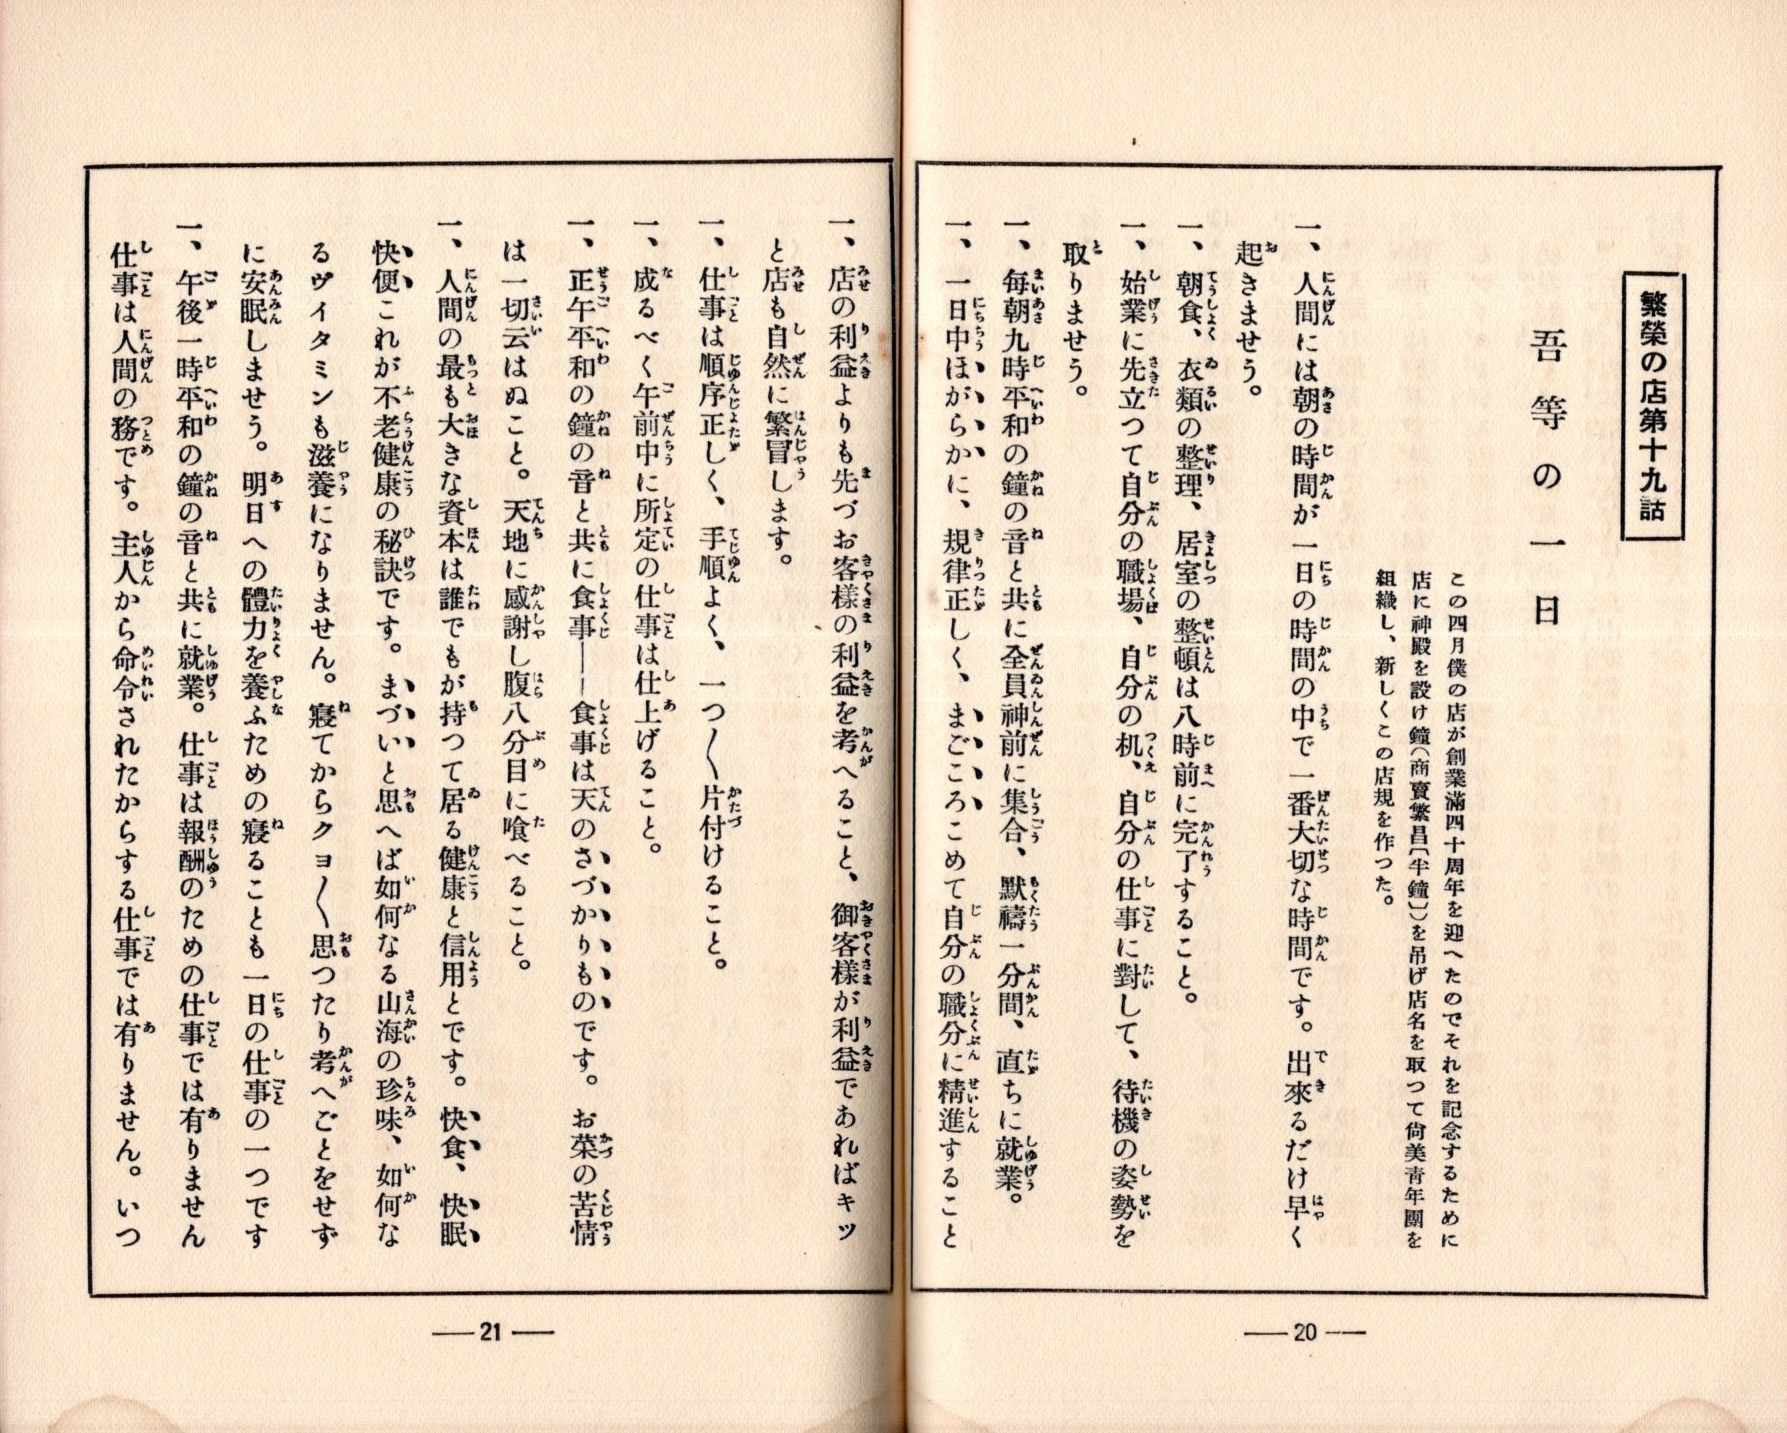 繁榮の店第十九話
吾等の一日
この四月僕の店が創業滿四十周年を迎へたのでそれを記念するために
店に神殿を設け鐘(商賣繁昌〔半鐘〕)を吊げ店名を取つて尙美靑年團を
組織し、新しくこの店規を作つた。
一、人間には朝の時間が一日の時間の中で一番大切な時間です。出來るだけ早く
起きませう。
一、朝食、衣類の整理、居室の整頓は八時前に完了すること。
一、始業に先立つて自分の職場、自分の机、自分の仕事に對して、待機の姿勢を
取りませう。
一、每朝九時平和の鐘の音と共に全員神前に集合、默禱一分間、直ちに就業。
一、一日中ほがらかに、規律正しく、まごころこめて自分の職分に精進すること
― 20 ―
一、店の利益よりも先づお客樣の利益を考へること、御客樣が利益であればキッ
と店も自然に繁冒します。
一、仕事は順序正しく、手順よく、一つ〱片付けること。
一、成るべく午前中に所定の仕事は仕上げること。
一、正午平和の鐘の音と共に食事――食事は天のさづかりものです。お菜の苦情
は一切云はぬこと。天地に感謝し腹八分目に喰べること。
一、人間の最も大きな資本は誰でもが持つて居る健康と信用とです。快食、快眠
快便これが不老健康の秘訣です。まづいと思へば如何なる山海の珍味、如何な
るヴイタミンも滋養になりません。寢てからクヨ〱思つたり考へごとをせず
に安眠しませう。明日への體力を養ふための寢ることも一日の仕事の一つです
一、午後一時平和の鐘の音と共に就業。仕事は報酬のための仕事では有りません
仕事は人間の務です。主人から命令されたからする仕事では有りません。いつ
― 21 ―